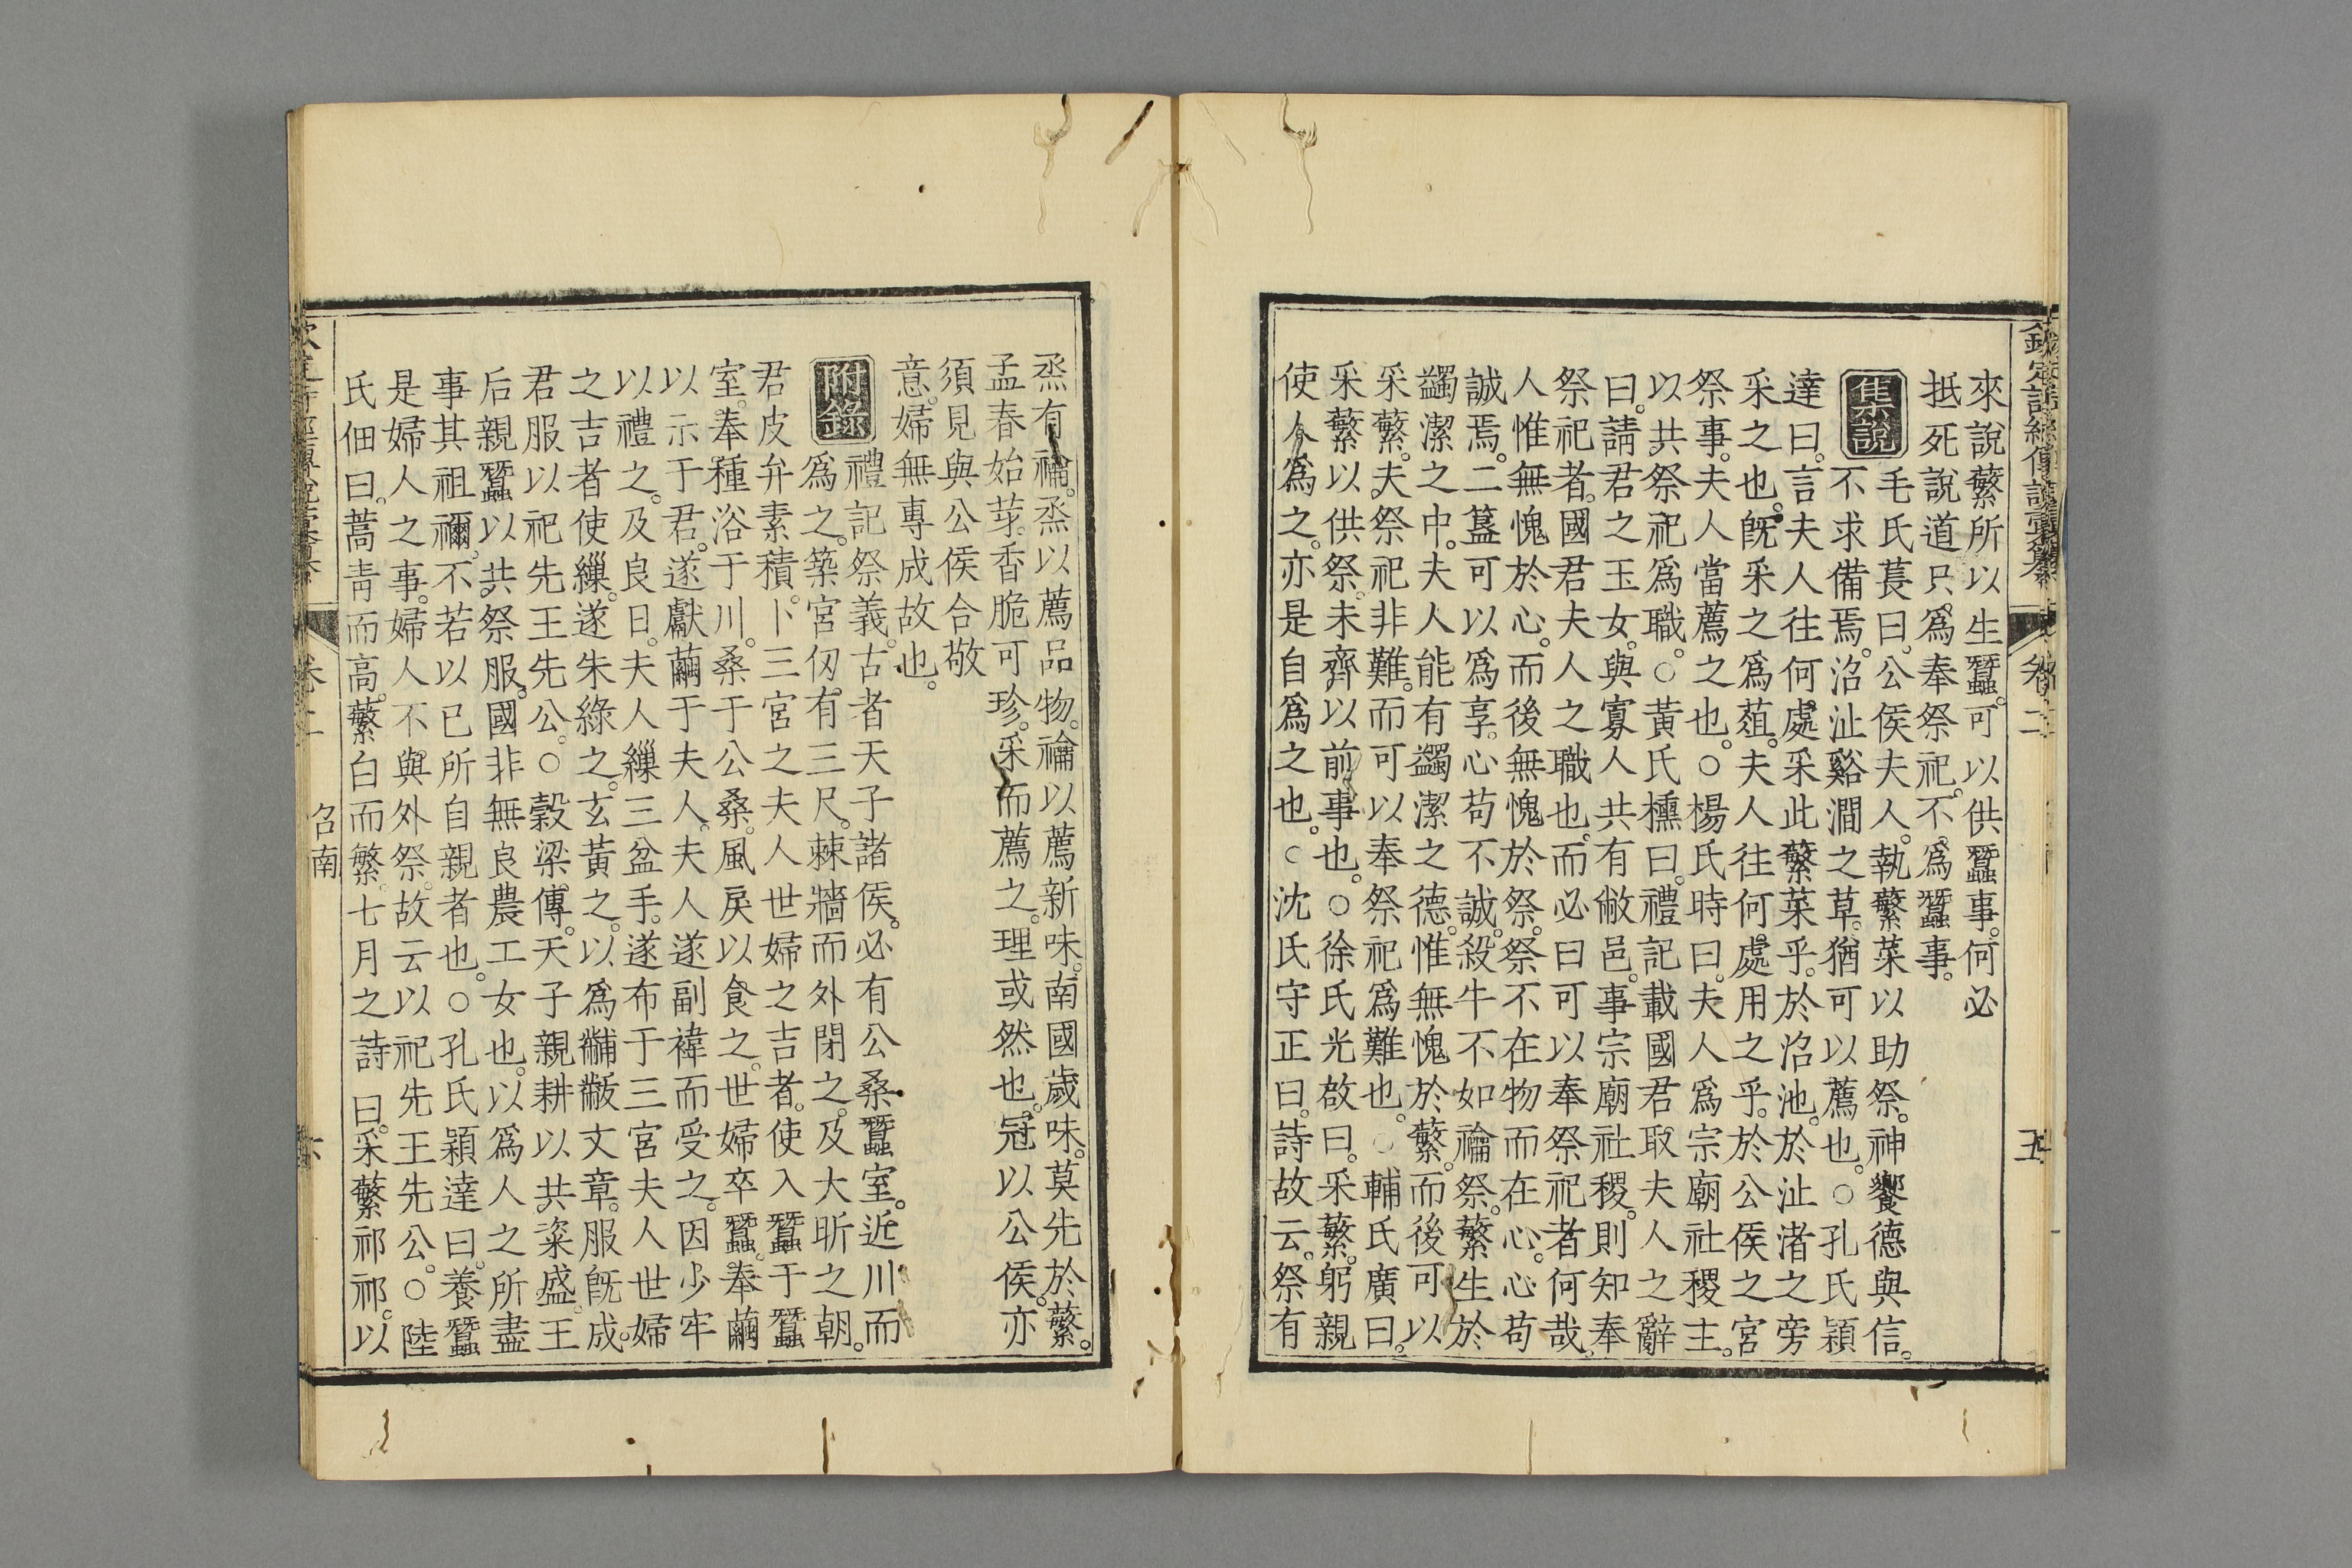 來說蘩所以生蠶。可以供蠶事。何必
抵死說道只爲奉祭祀。不爲蠶事。
集說
毛氏萇曰。公侯夫人。執蘩菜以助祭。神饗德與信。
不求備焉。沼沚谿澗之草。猶可以薦也。○孔氏穎
達曰。言夫人往何處采此蘩菜乎。於沼池。於沚渚之旁
采之也。旣采之爲葅。夫人往何處用之乎。於公侯之宮
祭事。夫人當薦之也。○楊氏時曰。夫人爲宗廟社稷主。
以共祭祀爲職。○黃氏櫄曰。禮記載國君取夫人之辭
曰。請君之玉女。與寡人共有敝邑。事宗廟社稷。則知奉
祭祀者。國君夫人之職也。而必曰可以奉祭祀者何哉。
人惟無愧於心。而後無愧於祭。祭不在物而在心。心苟
誠焉。二簋可以爲享。心苟不誠。殺牛不如禴祭。蘩生於
蠲潔之中。夫人能有蠲潔之德。惟無愧於蘩。而後可以
采蘩。夫祭祀非難。而可以奉祭祀爲難也。○輔氏廣曰。
采蘩以供祭。未齊以前事也。○徐氏光啟曰。采蘩。躬親
使人爲之。亦是自爲之也。○沈氏守正曰。詩故云。祭有
欽定詩經傳說彙纂
卷二
五
烝有禴。烝以薦品物。禴以薦新味。南國歲味。莫先於蘩。
孟春始芽。香脆可珍。采而薦之。理或然也。冠以公侯。亦
須見與公侯合敬
意。婦無專成故也。
附錄
禮記祭義。古者天子諸侯。必有公桑蠶室。近川而
爲之。築宮仞有三尺。棘牆而外閉之。及大昕之朝。
君皮弁素積。卜三宮之夫人世婦之吉者。使入蠶于蠶
室。奉種浴于川。桑于公桑。風戾以食之。世婦卒蠶。奉繭
以示于君。遂獻繭于夫人。夫人遂副褘而受之。因少牢
以禮之。及良日。夫人繅三盆手。遂布于三宮夫人世婦
之吉者使繅。遂朱綠之。玄黃之。以爲黼黻文章。服旣成。
君服以祀先王先公。○穀梁傳。天子親耕以共粢盛。王
后親蠶以共祭服。國非無良農工女也。以爲人之所盡
事其祖禰。不若以已所自親者也。○孔氏穎達曰。養蠶
是婦人之事。婦人不與外祭。故云以祀先王先公。○陸
氏佃曰。蒿靑而高。蘩白而繁。七月之詩曰。采蘩祁祁。以
召南